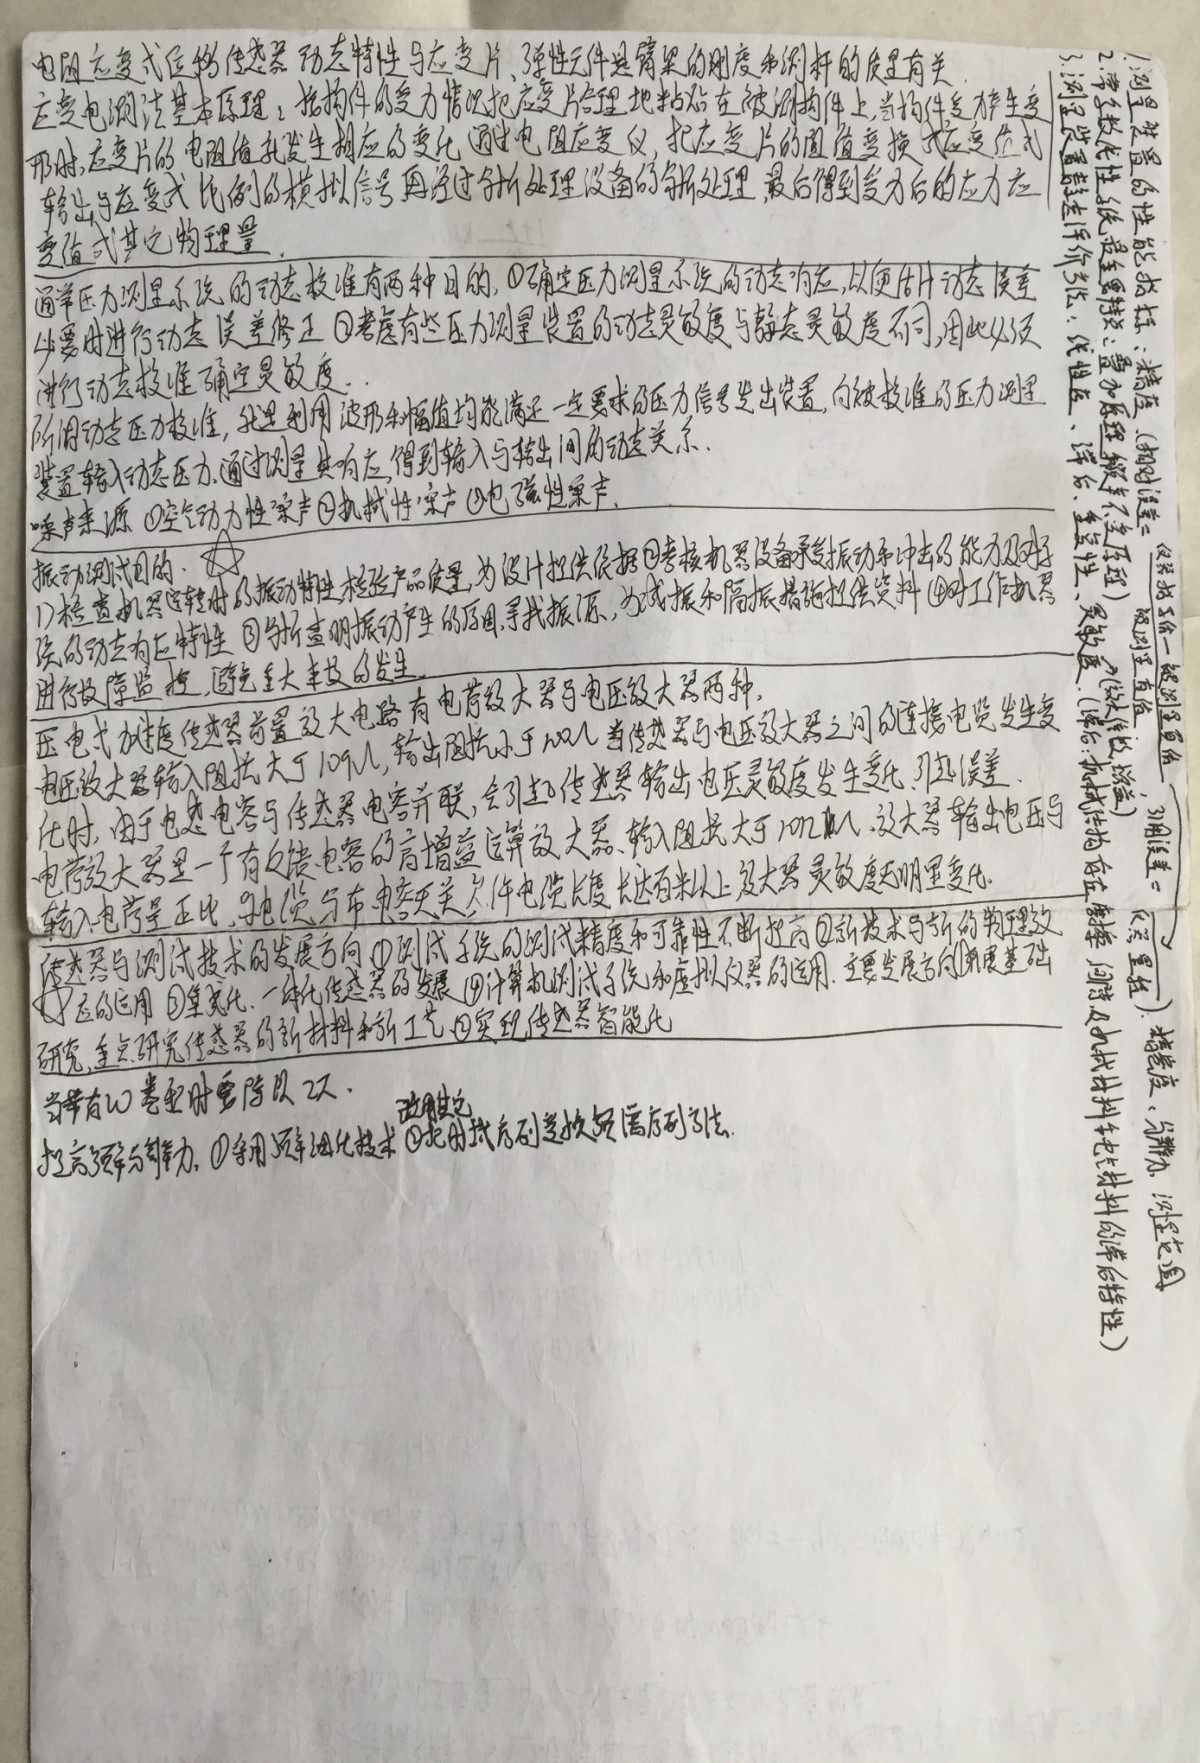 电阻应变式位移传感器动态特性与应变片、弹性元件悬臂梁的刚度和测杆的质量有关.
应变电测法基本原理：按构件的受力情况把应变片合理地粘贴在被测构件上,当构件受力产生变
形时,应变片的电阻值就发生相应的变化 通过电阻应变仪,把应变片的阻值变换成应变值或
输出与应变成比例的模拟信号再经过分析处理设备的分析处理,最后得到受力后的应力应
变值或其它物理量.
通常压力测量系统的动态校准有两种目的,①确定压力测量系统的动态响应,以便估计动态误差
必要时进行动态误差修正②考虑有些压力测量装置的动态灵敏度与静态灵敏度不同,因此必须
进行动态校准确定灵敏度.
所谓动态压力校准,就是利用波形和幅值均能满足一定要求的压力信号发出装置,向被校准的压力测量
装置输入动态压力.通过测量其响应,得到输入与输出间的动态关系.
噪声来源 ①空气动力性噪声②机械性噪声③电磁性噪声.
振动测试目的.
1)检查机器运转时的振动特性检验产品质量,为设计提供依据②考核机器设备承受振动和冲击的能力及对系
统的动态响应特性 ③分析查明振动产生的原因,寻找振源,为减振和隔振措施提供资料④对工作机器
进行故障监控,避免重大事故的发生.
压电式加速度传感器前置放大电路有电荷放大器与电压放大器两种.
电压放大器输入阻抗大于109Ω,输出阻抗小于100Ω 当传感器与电压放大器之间的连接电缆发生变
化时,由于电缆电容与传感器电容并联,会引起传感器输出电压灵敏度发生变化.引起误差.
电荷放大器是一个有反馈电容的高增益运算放大器.输入阻抗大于1012Ω.放大器输出电压与
输入电荷量正比.与电缆分布电容无关 允许电缆长度长达百米以上放大器灵敏度无明显变化.
传感器与测试技术的发展方向①测试系统的测试精度和可靠性不断提高②新技术与新的物理效
应的运用③集成化.一体化传感器的发展④计算机测试系统和虚拟仪器的运用.主要发展方向①开展基础
研究,重点研究传感器的新材料和新工艺②实现传感器智能化
当带有W类型时要除以2π.
改用其它
提高频率分辨力.①采用频率细化技术②把时域序列变换频谱序列方法.
1.测量装置的性能指标：精度.(相对误差=仪器指示值-被测量真值/被测量真值,引用误差=仪器量程).精密度、分辨力、测量范围
2.常系数线性系统最重要特点：叠加原理 频率不变原理)(线性微增益)
3.测量装置静态评价方法：线性度、滞后、重复性、灵敏度.(滞后:机械结构存在摩擦间隙及机械材料和电气材料的滞后特性)